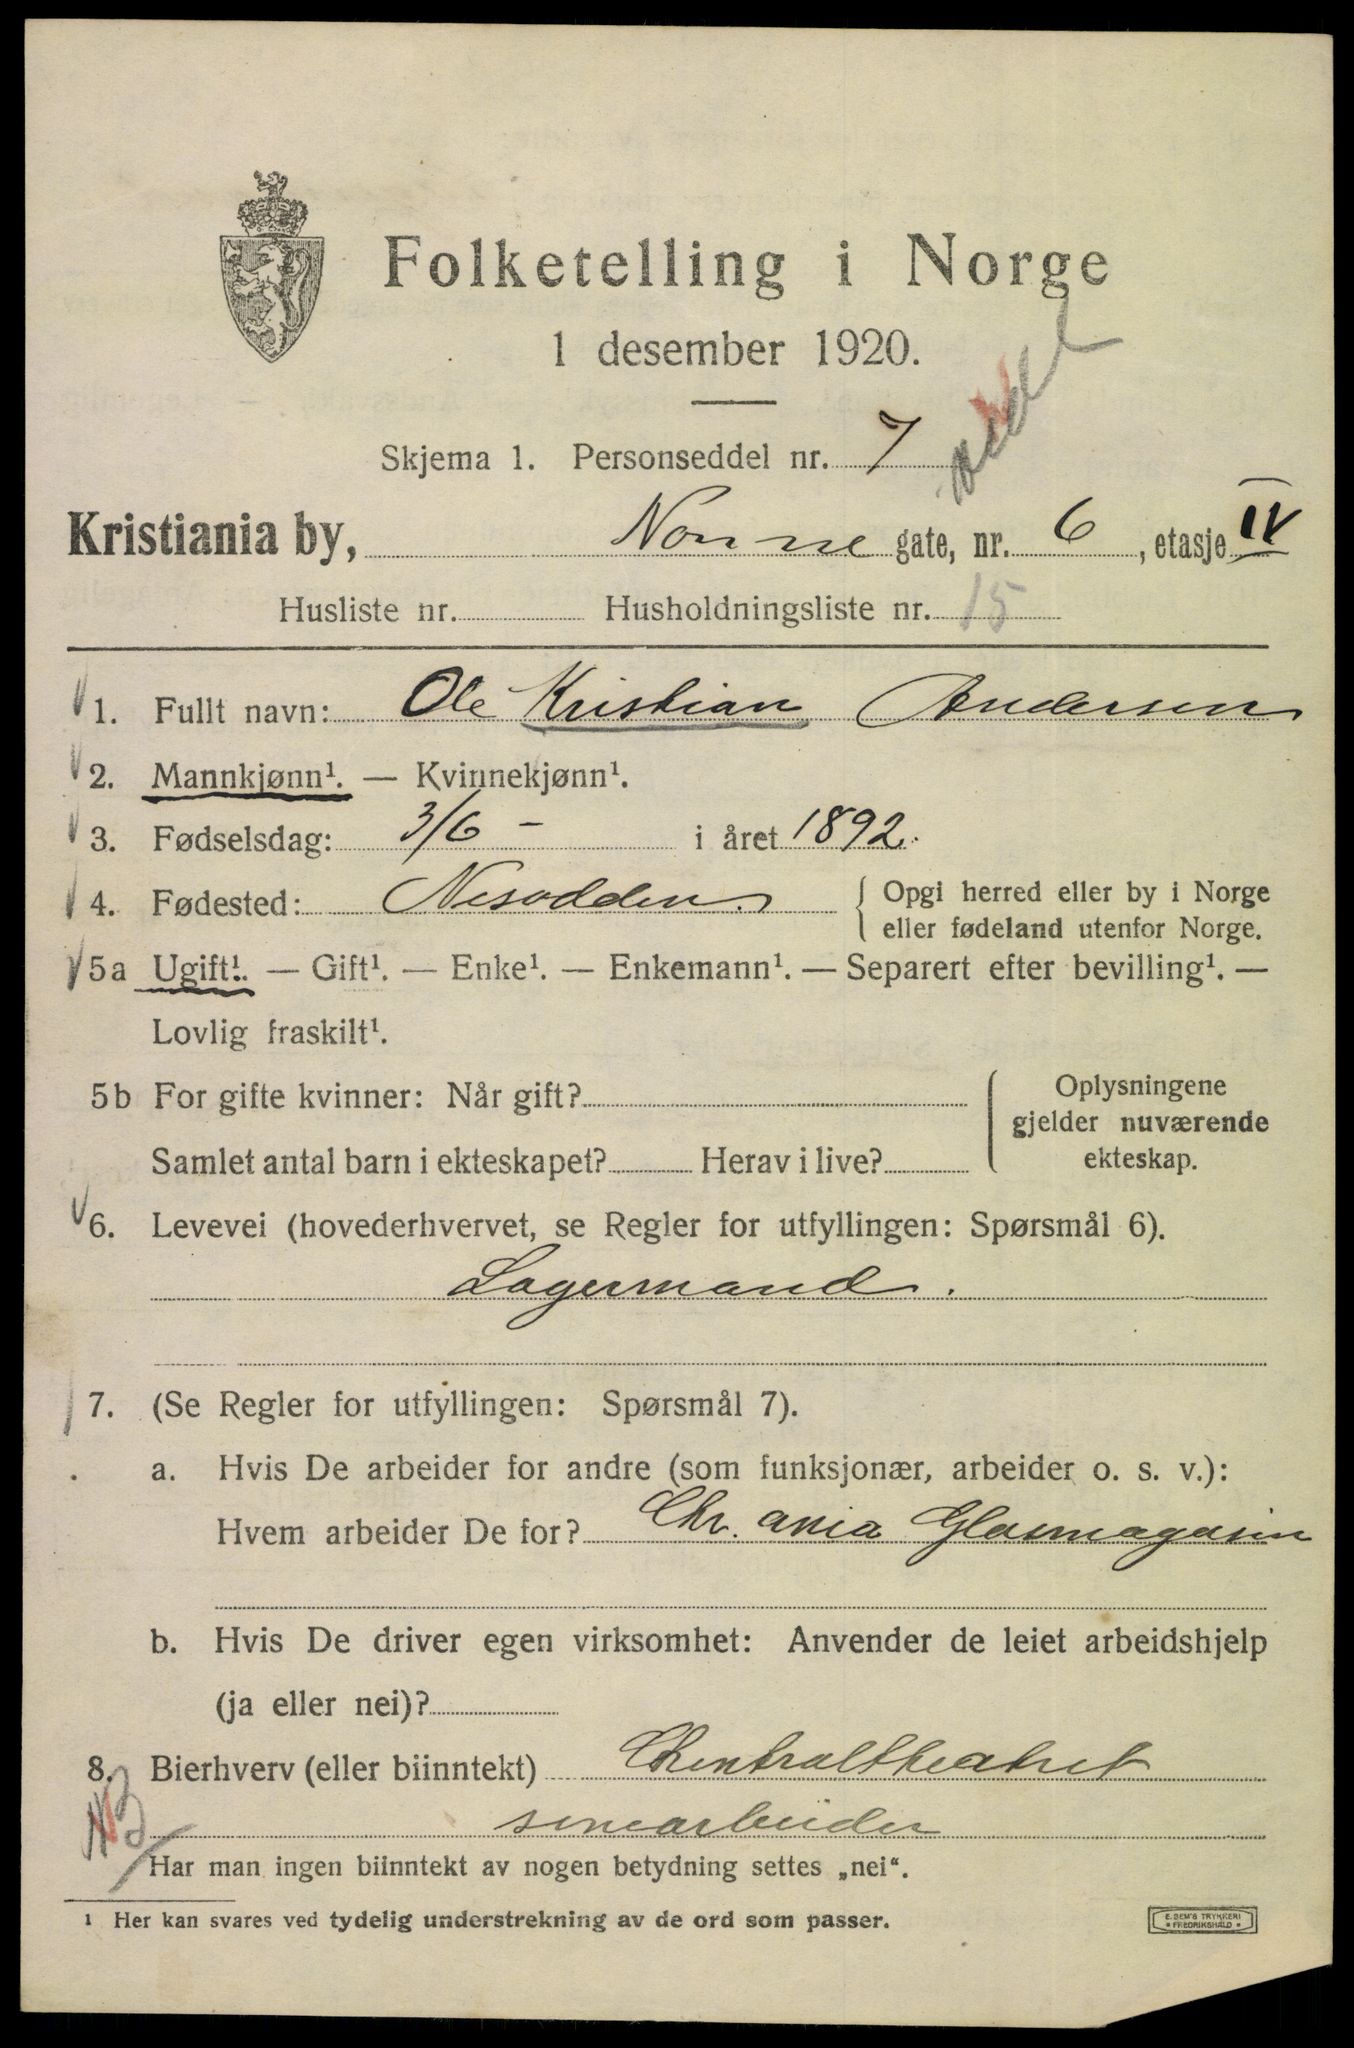 Folketelling i Norge
1 desember 1920.
Skjema 1. Personseddel nr. 7
Kristiania by, Nonne gate, nr. 6, etasje IV
Husliste nr. Husholdningsliste nr. 15
1. Fullt navn: Ole Kristian Andersen
2. Mannkjønn¹. — Kvinnekjønn¹.
3. Fødselsdag: 3/6 - i året 1892.
4. Fødested: Nesodden. { Opgi herred eller by i Norge
eller fødeland utenfor Norge.
5a Ugift¹. — Gift¹. — Enke¹. — Enkemann¹. — Separert efter bevilling¹. —
Lovlig fraskilt¹.
5b For gifte kvinner: Når gift? { Oplysningene
gjelder nuværende
Samlet antal barn i ekteskapet? Herav i live? ekteskap.
6. Levevei (hovederhvervet, se Regler for utfyllingen: Spørsmål 6).
Lagermand.
7. (Se Regler for utfyllingen: Spørsmål 7).
a. Hvis De arbeider for andre (som funksjonær, arbeider o. s. v.):
Hvem arbeider De for? Chr. ania Glasmagasin
b. Hvis De driver egen virksomhet: Anvender de leiet arbeidshjelp
(ja eller nei)?
8. Bierhverv (eller biinntekt) Chentraltheatret
senearbeider
Har man ingen biinntekt av nogen betydning settes „nei“.
¹ Her kan svares ved tydelig understrekning av de ord som passer.
E. SEM'S TRYKKERI
FREDRIKSHALD